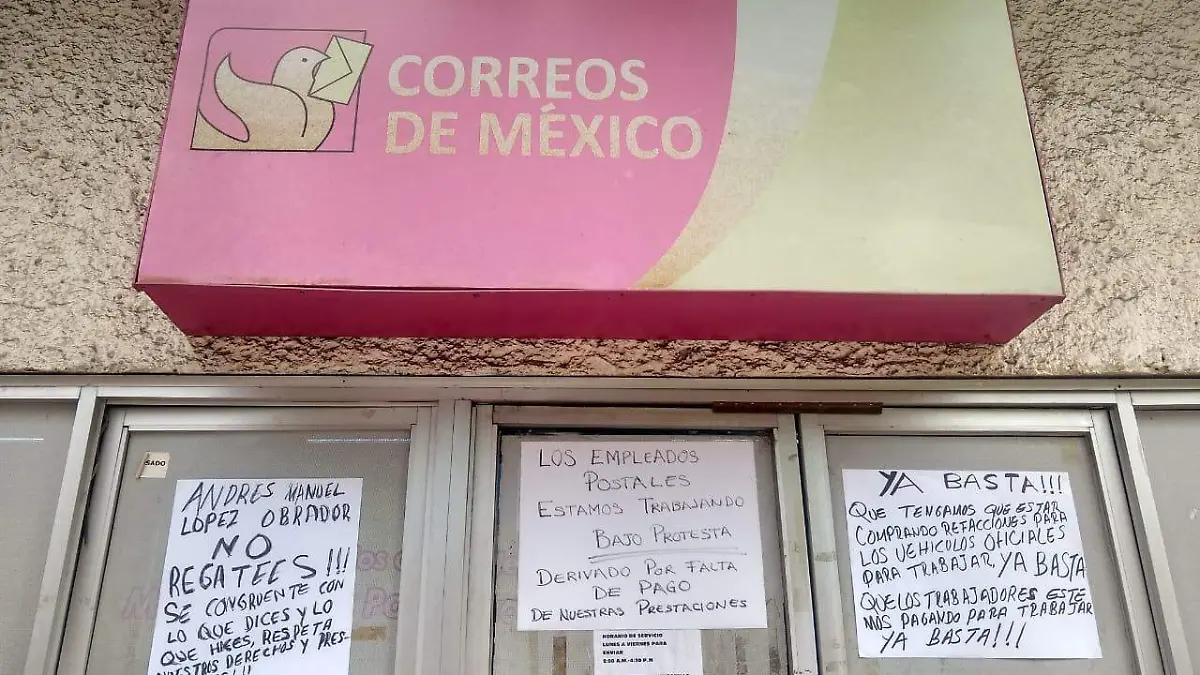 CORREOS
DE MÉXICO
SADO
ANDRES MANUEL
LÓPEZ OBRADOR
NO
REGATEES!!!
SE CONGRUENTE CON
LO QUE DICES Y LO
QUE HACES, RESPETA
NUESTROS DERECHOS Y PRES-
LOS EMPLEADOS
POSTALES
ESTAMOS TRABAJANDO
BAJO PROTESTA
DERIVADO POR FALTA
DE PAGO
DE NUESTRAS PRESTACIONES
HORARIO DE SERVICIO
LUNES A VIERNES PARA
ENVIAR
YA BASTA!!!
QUE TENGAMOS QUE ESTAR
COMPRANDO REFACCIONES PARA
LOS VEHICULOS OFICIALES
PARA TRABAJAR, YA BASTA
QUE LOS TRABAJADORES ESTE
MOS PAGANDO PARA TRABAJAR
YA BASTA!!!